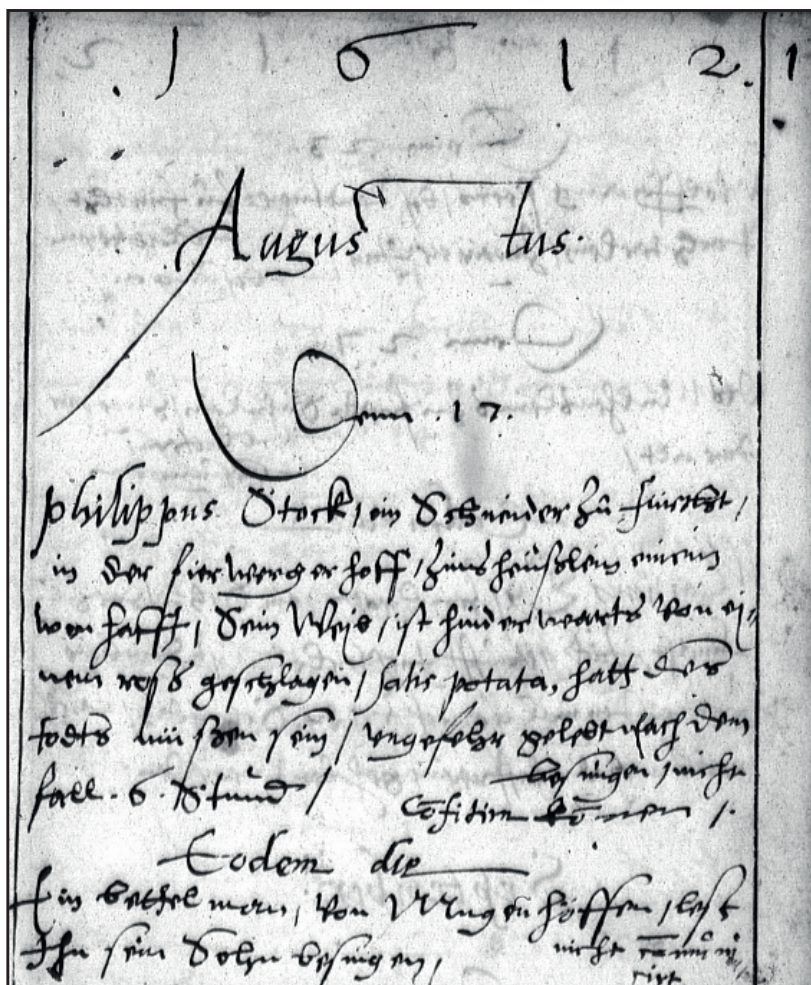 1612.
Augustus.
Denn. 17.
Philippus Stock, ein Schneider zu
in der hoff, Zinsheußlein einem
wonhafft, Sein Weib, ist hinderwarts von ei-
nem ross geschlagen, satis potata, hatt des
todts müssen sein, ungefehr gelebt nach dem
fall. 6. Stund / besingen, nicht
können /.
Eodem die
Ein bettelman, von Mugenhoffen, lest
Ihn sein Sohn besingen, nicht